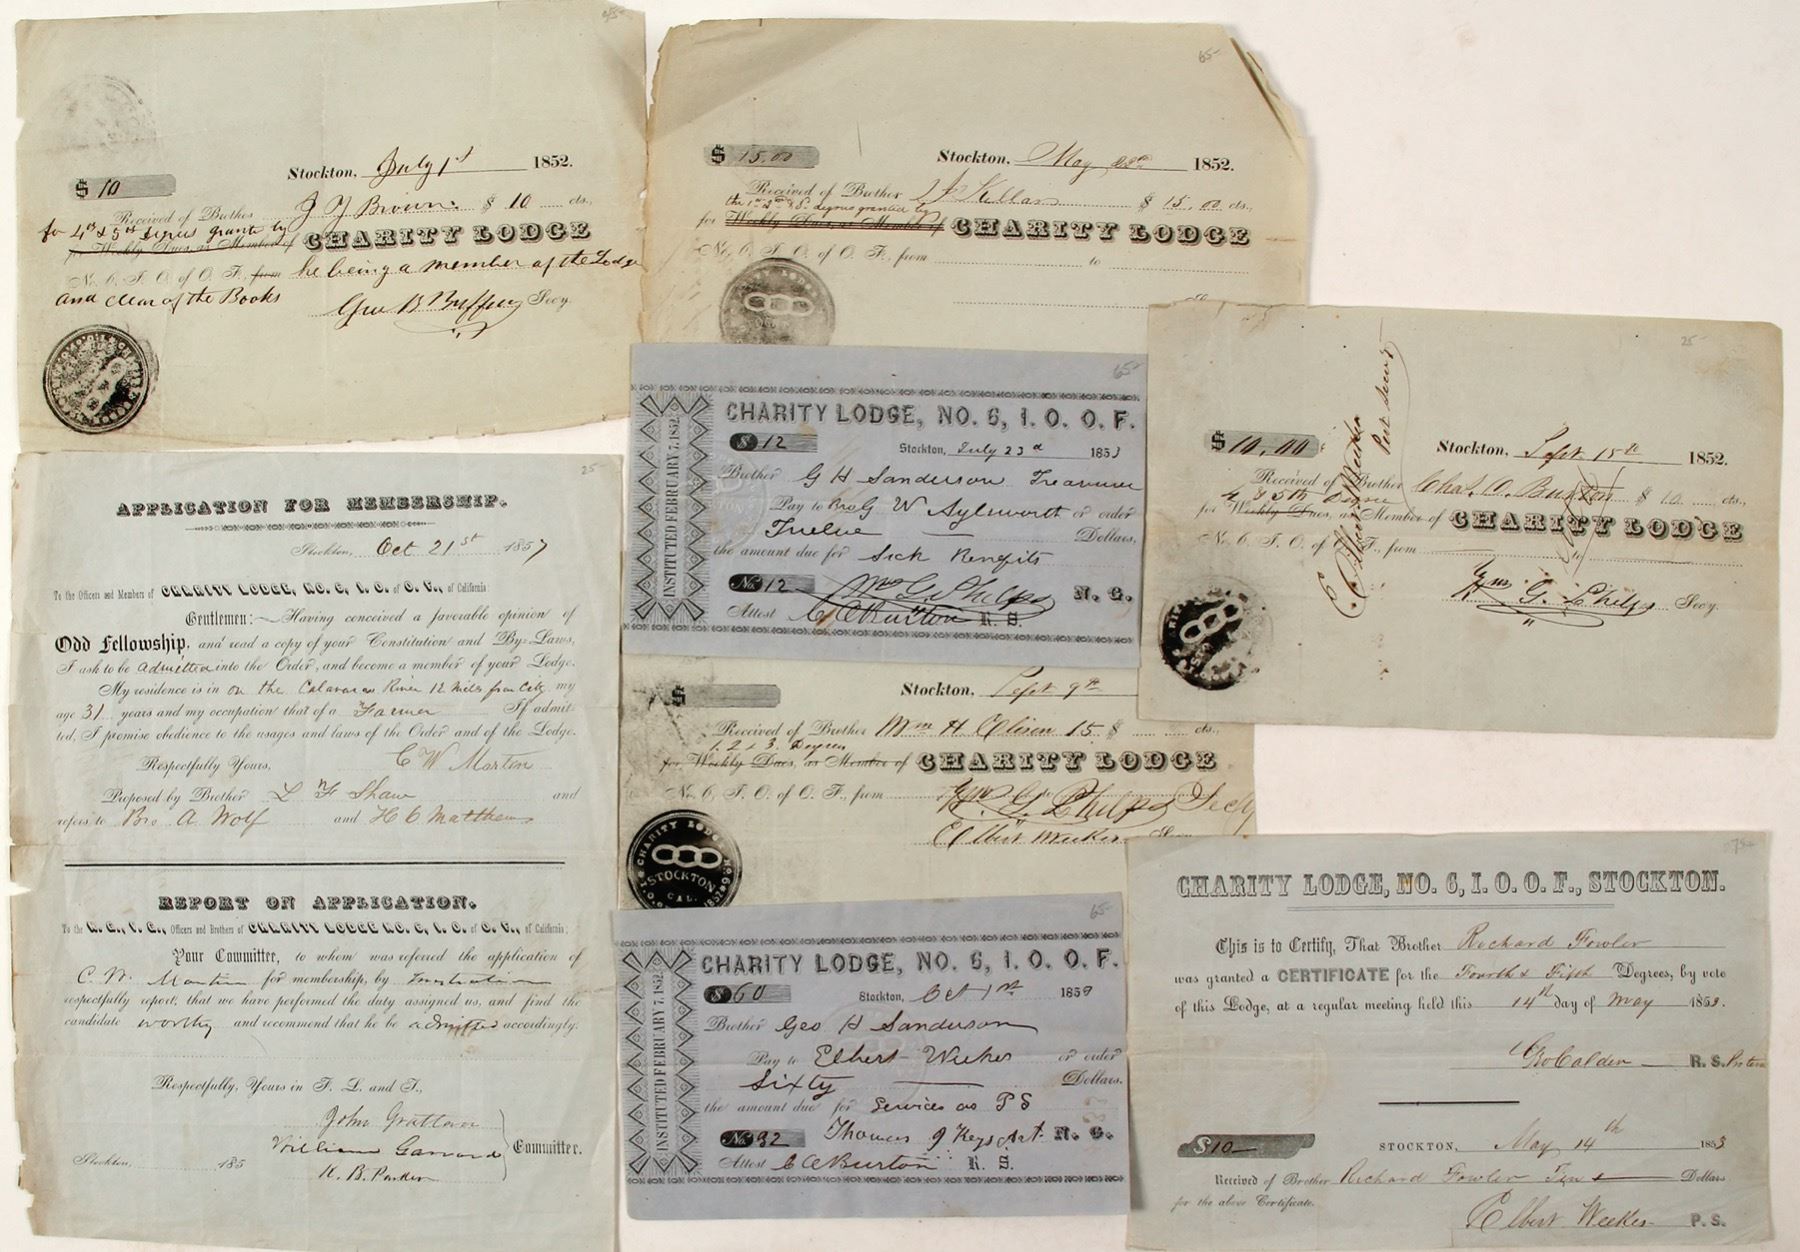 45-
Stockton, July 1st 1852.
$ 10
Received of Brother J Y Brown $ 10 cts.,
for 4th & 5th degrees grante by
for Weekly Dues, as Member of CHARITY LODGE
No. 6, I. O. of O. F. from he being a member of the Lodge
and clear of the Books
Geo B Buffery Secy.
65-
$ 15.00
Stockton, May 1852.
Received of Brother $ 15.00 cts.,
the 1st 2d & 3d degrees granted by
for Weekly Dues, as Member of CHARITY LODGE
No. 6, I. O. of O. F., from to
CHARITY LODGE
65-
CHARITY LODGE, NO. 6, I. O. O. F.
INSTITUTED FEBRUARY 7, 1852.
$ 12
Stockton, July 23d 1853
Brother G H Sanderson Treasurer
Pay to Bro G W Aylsworth or order
Twelve Dollars,
the amount due for Sick Benefits
No. 12 Wm G Phelps N. G.
Attest C A Burton R. S.
25-
$ 10.00
Stockton, Sept 15th 1852.
Received of Brother Chas. A. Burton $ 10 cts.,
4 & 5th Degree
for Weekly Dues, as Member of CHARITY LODGE
No. 6, I. O. of O. F., from to
Wm G. Phelps Secy.
Elbert Weeker
Per Secy
25-
APPLICATION FOR MEMBERSHIP.
Stockton, Oct 21st 1857
To the Officers and Members of CHARITY LODGE, NO. 6, I. O. of O. F., of California:
Gentlemen:—Having conceived a favorable opinion of
Odd Fellowship, and read a copy of your Constitution and By-Laws,
I ask to be admitted into the Order, and become a member of your Lodge.
My residence is in on the Calaveras River 12 miles from City my
age 31 years and my occupation that of a Farmer If admit-
ted, I promise obedience to the usages and laws of the Order and of the Lodge.
Respectfully Yours, C W Marten
Proposed by Brother L F Shaw and
refers to Bro A Wolf and H C Matthews
REPORT ON APPLICATION.
To the N. G., V. G., Officers and Brothers of CHARITY LODGE NO. 6, I. O. of O. F., of California:
Your Committee, to whom was referred the application of
C. W. Marten for membership, by Innitiation
respectfully report, that we have performed the duty assigned us, and find the
candidate worthy and recommend that he be admitted accordingly.
Respectfully, Yours in F. L. and T.,
John Grattan
William Garrard
Committee.
H. B. Parker
Stockton, 185
$
Stockton, Sept 9th
Received of Brother Wm H Olison 15 $ cts.,
1. 2 & 3. Degrees
for Weekly Dues, as Member of CHARITY LODGE
No. 6, I. O. of O. F., from Wm G Phelps Secy
Elbert Weeker Secy
CHARITY LODGE No 6
I.O. STOCKTON CAL. 1852
65-
CHARITY LODGE, NO. 6, I. O. O. F.
INSTITUTED FEBRUARY 7, 1852.
$ 60
Stockton, Oct 1st 1859
Brother Geo H Sanderson
Pay to Elbert Weeker or order
Sixty Dollars.
the amount due for Services as P S
No. 92 Thomas J Keys Act. N. G.
Attest C A Burton R. S.
75-
CHARITY LODGE, NO. 6, I. O. O. F., STOCKTON.
This is to Certify, That Brother Richard Fowler
was granted a CERTIFICATE for the Fourth & Fifth Degrees, by vote
of this Lodge, at a regular meeting held this 14th day of May 1853.
Geo Calder R. S. Protem
$10
STOCKTON, May 14th 1853
Received of Brother Richard Fowler Ten Dollars
for the above Certificate.
Elbert Weeker P. S.